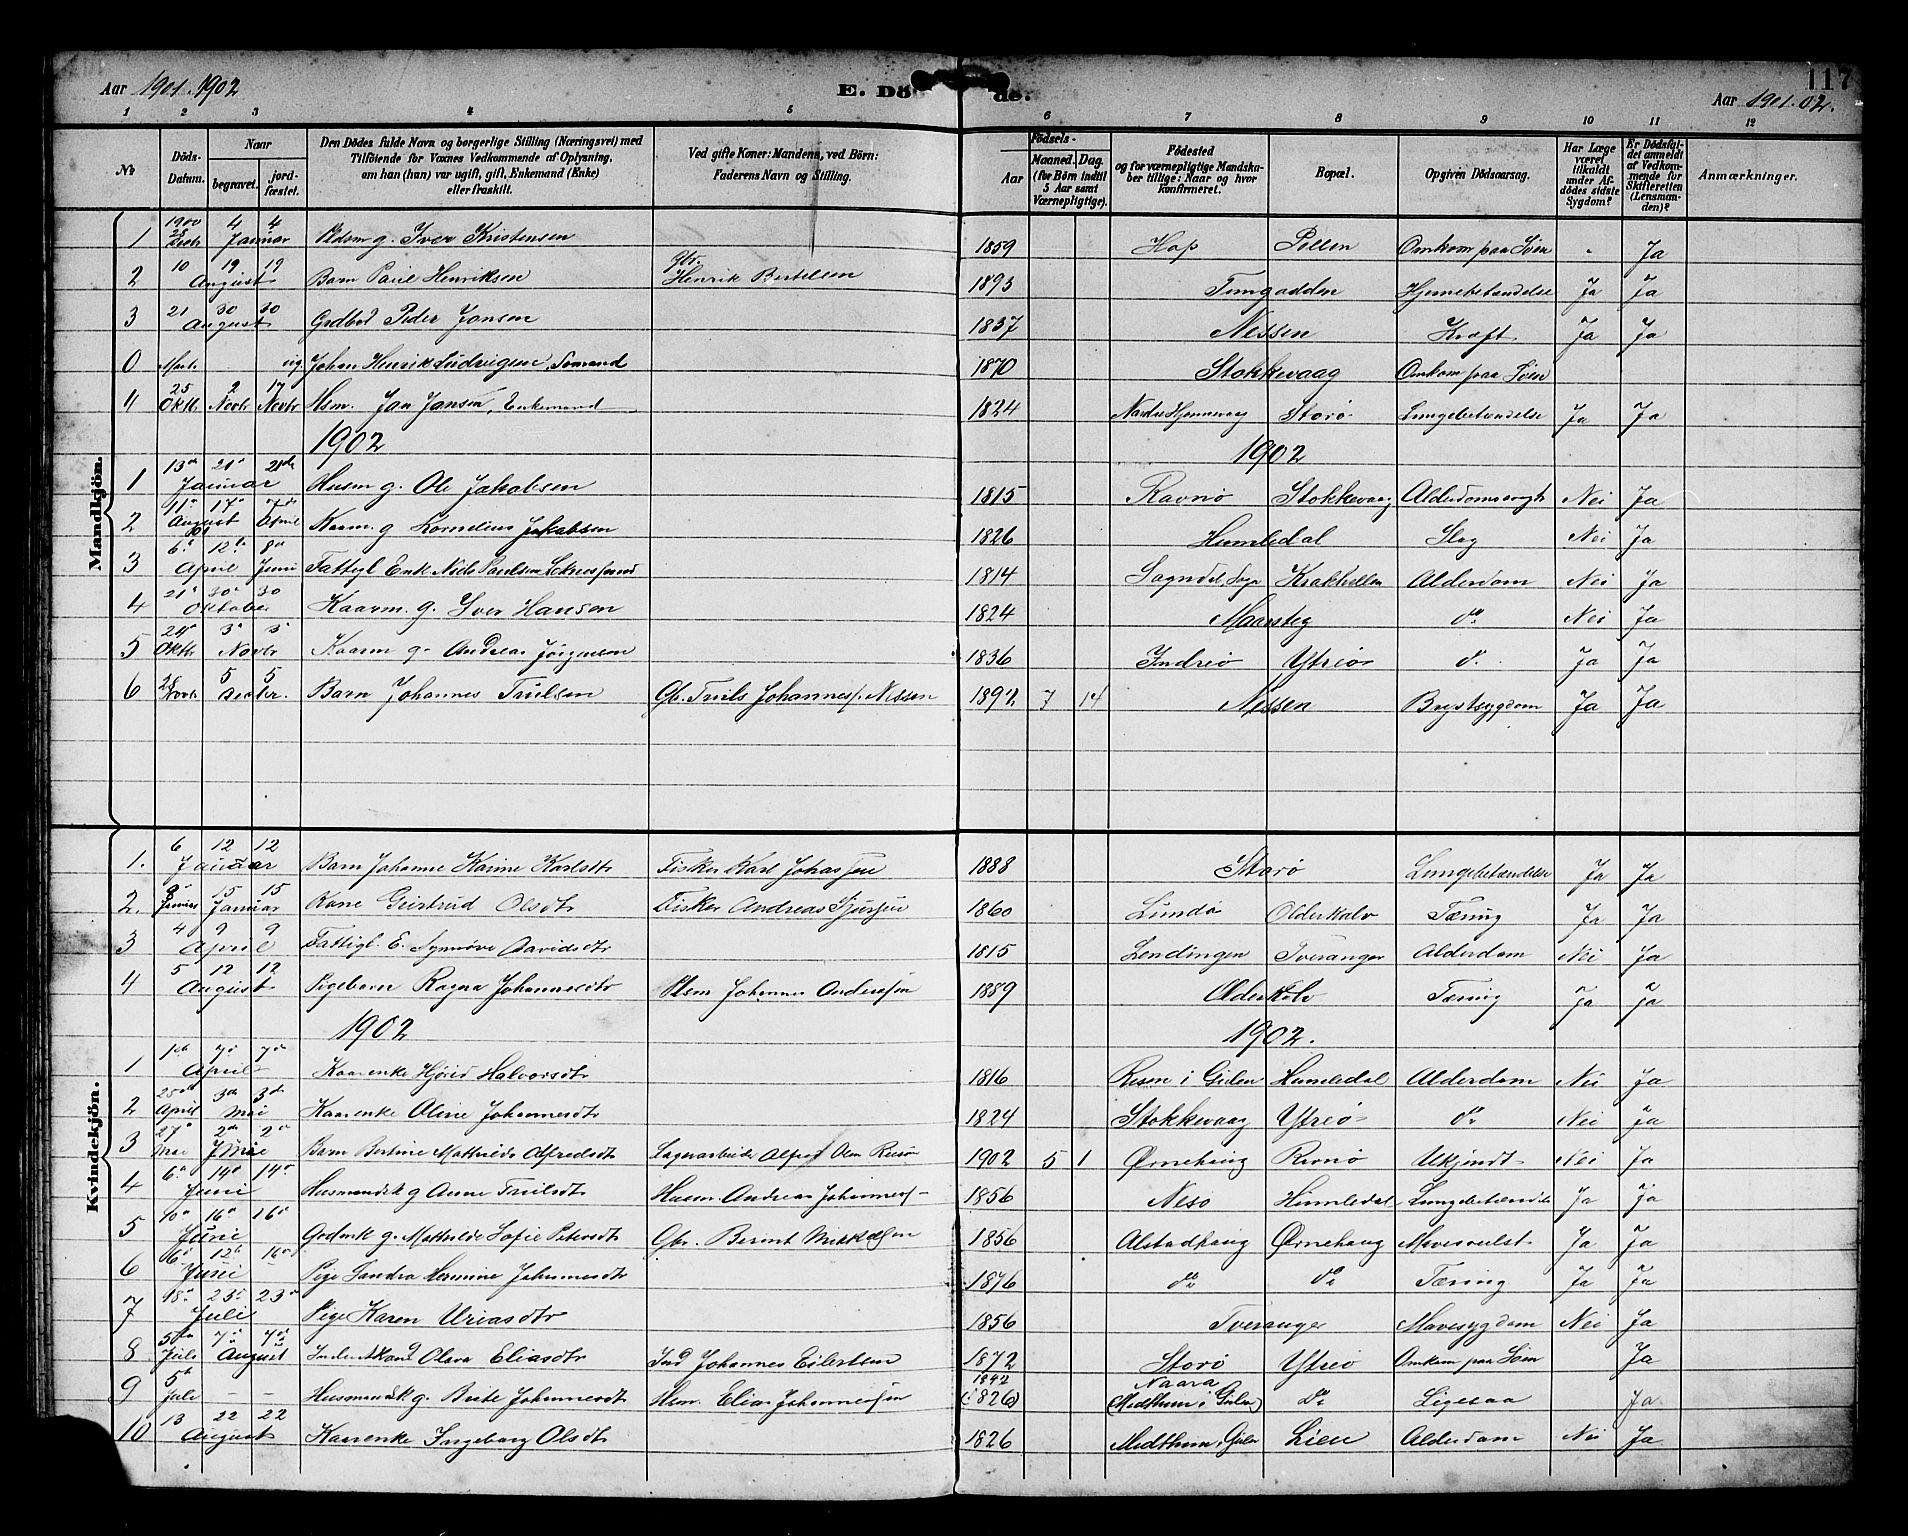 Aar 1901. 1902
E. Dö de.
117
Aar 1901. 02.
1 2 3 4 5 6 7 8 9 10 11 12
№ Döds-Datum. Naar begravet. jord-fæstet. Den Dödes fulde Navn og borgerlige Stilling (Næringsvei) med Tilföiende for Voxnes Vedkommende af Oplysning, om han (hun) var ugift, gift, Enkemand (Enke) eller fraskilt. Ved gifte Koner: Mandens, ved Börn: Faderens Navn og Stilling. Födsels- Aar Maaned. Dag. (for Börn indtil 5 Aar samt Værnepligtige). Födested og for værnepligtige Mandskaber tillige: Naar og hvor konfirmeret. Bopæl. Opgiven Dödsaarsag. Har Læge været tilkaldt under Afdödes sidste Sygdom? Er Dödsfaldet anmeldt af Vedkommende for Skifteretten (Lensmanden)? Anmærkninger.
Mandkjön.
1 1900 28 Decbr 4 4 Januar g. Iver Kristensen 1859 Hop Pollen Omkom paa Söen - Ja
2 10 19 19 August Barn Paul Henriksen Gbr. Henrik Bertelsen 1893 Hjernebetændelse Ja Ja
3 21 30 30 August Peder Jansen 1837 Nessen Kræft Ja Ja
0 Johan Henrik Ludvigsen 1870 Stokkevaag Omkom paa Söen
4 25 Oktbr 2 Novbr 17 Novbr Hsm. Jan Jansen, Enkemand 1824 Storö Lungebetændelse Ja Ja
1902 1902
1 13de 21de 21de Januar Husm g. Ole Jakobsen 1815 Ravnö Stokkevaag Nei Ja
2 11 August 17 7de April Kaarm. g Kornelius Jakobsen 1826 Humledal Slag Nei Ja
3 6te 12te April 8de Juni Fattigl Enk Niels Paulsen 1814 Alderdom Nei Ja
4 21 30 30 Oktober Kaarm. g. Iver Hansen 1824 do Nei Ja
5 24 Oktbr 3 3 Novbr Kaarm g. Andreas Jörgensen 1836 Indreö Ytreö do Ja Ja
6 28 Novbr 5 5 Decbr. Barn Johannes Trulsen Gbr. Truls Johanness. Nessen 1892 7 14 Nessen Brystsygdom Ja Ja
Kvindekjön.
1. 6 12 12 Januar Barn Johanne Karine Karlsdtr Fisker Karl Johassen 1888 Storö Lungebetændelse Ja Ja
2. 8 Januar 15 15 Januar Kone Gjertrud Olsdtr Fisker Andreas Sjursen 1860 Lundö Olderkalv Tæring Ja Ja
3 4 9 9 April Fattigl. E. Synnöve Davidsdtr 1815 Lendingen Tveranger Alderdom Nei Ja
4 5 12 12 August Pigebarn Ragna Johannesdtr Johannes Andersen 1889 Olderkalv Tæring Ja Ja
1902 1902.
1 1ste 7de 7de April Kaarenke Hjörid Halvorsdtr 1816 Risen i Gulen Humledal Alderdom Nei Ja
2 25de April 3de 3de Mai Kaarenke Oline Johannesdtr 1824 Stokkevaag Ytreö do Nei Ja
3 27 Mai 2de 2de Barn Bertine Mathilde Alfredsdtr Alfred Olsen 1902 5 1 Örnehaug Risnö Ukjendt Nei Ja
4 6te 14de 14de Juni Husmandsk g Anne Trulsdtr Husm. Andreas Johanness- 1856 Nesö Humledal Lungebetændelse Ja Ja
5 10de 16de 16de Juni g. Mathilde Sofie Petersdtr Gbr. Berent Mikkelsen 1856 Alstadhaug Örnehaug Mavesvulst Ja Ja
6 6te 12te 16de Juni Pige Sandra Hermine Johannesdtr 1876 do do Tæring Ja Ja
7 18de 23de 23de Juli Pige Karen Uriasdtr 1856 Tveranger Mavesygdom Nei Ja
8 5te Juli 7de 7de August Olava Eliasdtr Ind Johannes Eilertsen 1872 Storö Ytreö Omkom paa Söen Ja
9 5te Juli - - Husmandsk g. Brite Johannesdtr Hsm. Elias Johannessen 1842 (1826) Naara (Midthun i Gulen) do Ligesaa Ja
10 13 22 22 August Kaarenke Ingeborg Olsdtr 1826 Midthun i Gulen Lien Alderdom Nei Ja